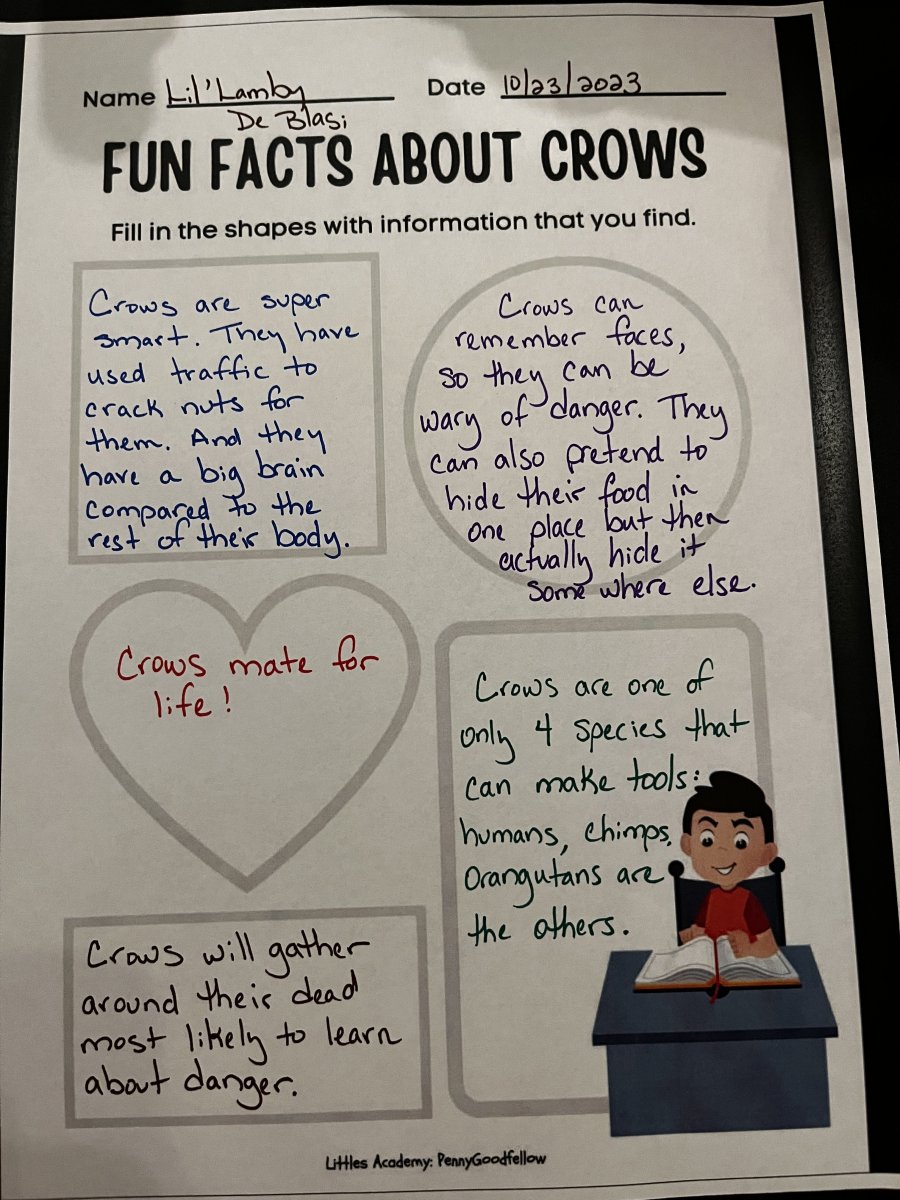 Name Lil' Lamby Date 10/23/2023
De Blasi
FUN FACTS ABOUT CROWS
Fill in the shapes with information that you find.
Crows are super
smart. They have
used traffic to
crack nuts for
them. And they
have a big brain
compared to the
rest of their body.
Crows can
remember faces,
so they can be
wary of danger. They
can also pretend to
hide their food in
one place but then
actually hide it
some where else.
Crows mate for
life!
Crows are one of
only 4 species that
can make tools:
humans, chimps,
Orangutans are
the others.
Crows will gather
around their dead
most likely to learn
about danger.
Littles Academy: PennyGoodfellow